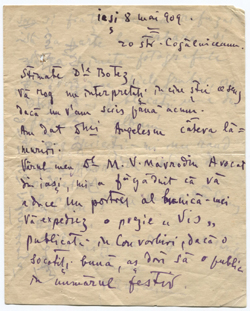 iași 8 mai 909.
20 str. Cogâlniceanu
Stimate Dle Botez,
Vă rog nu interpretați in cine știe ce sens
dacă nu v'am scris până acum.
Am dat Dnei Angelescu câteva lă-
muriri.
Vărul meu Dl M. V. Mavrodin Avocat
din iași, mi-a făgăduit că vă
aduce un portret al bunică-mei
Vă expediez o poezie „Vis"
publicată in Convorbiri; dacă o
socotiți bună, aș dori să o public
in numărul festiv.